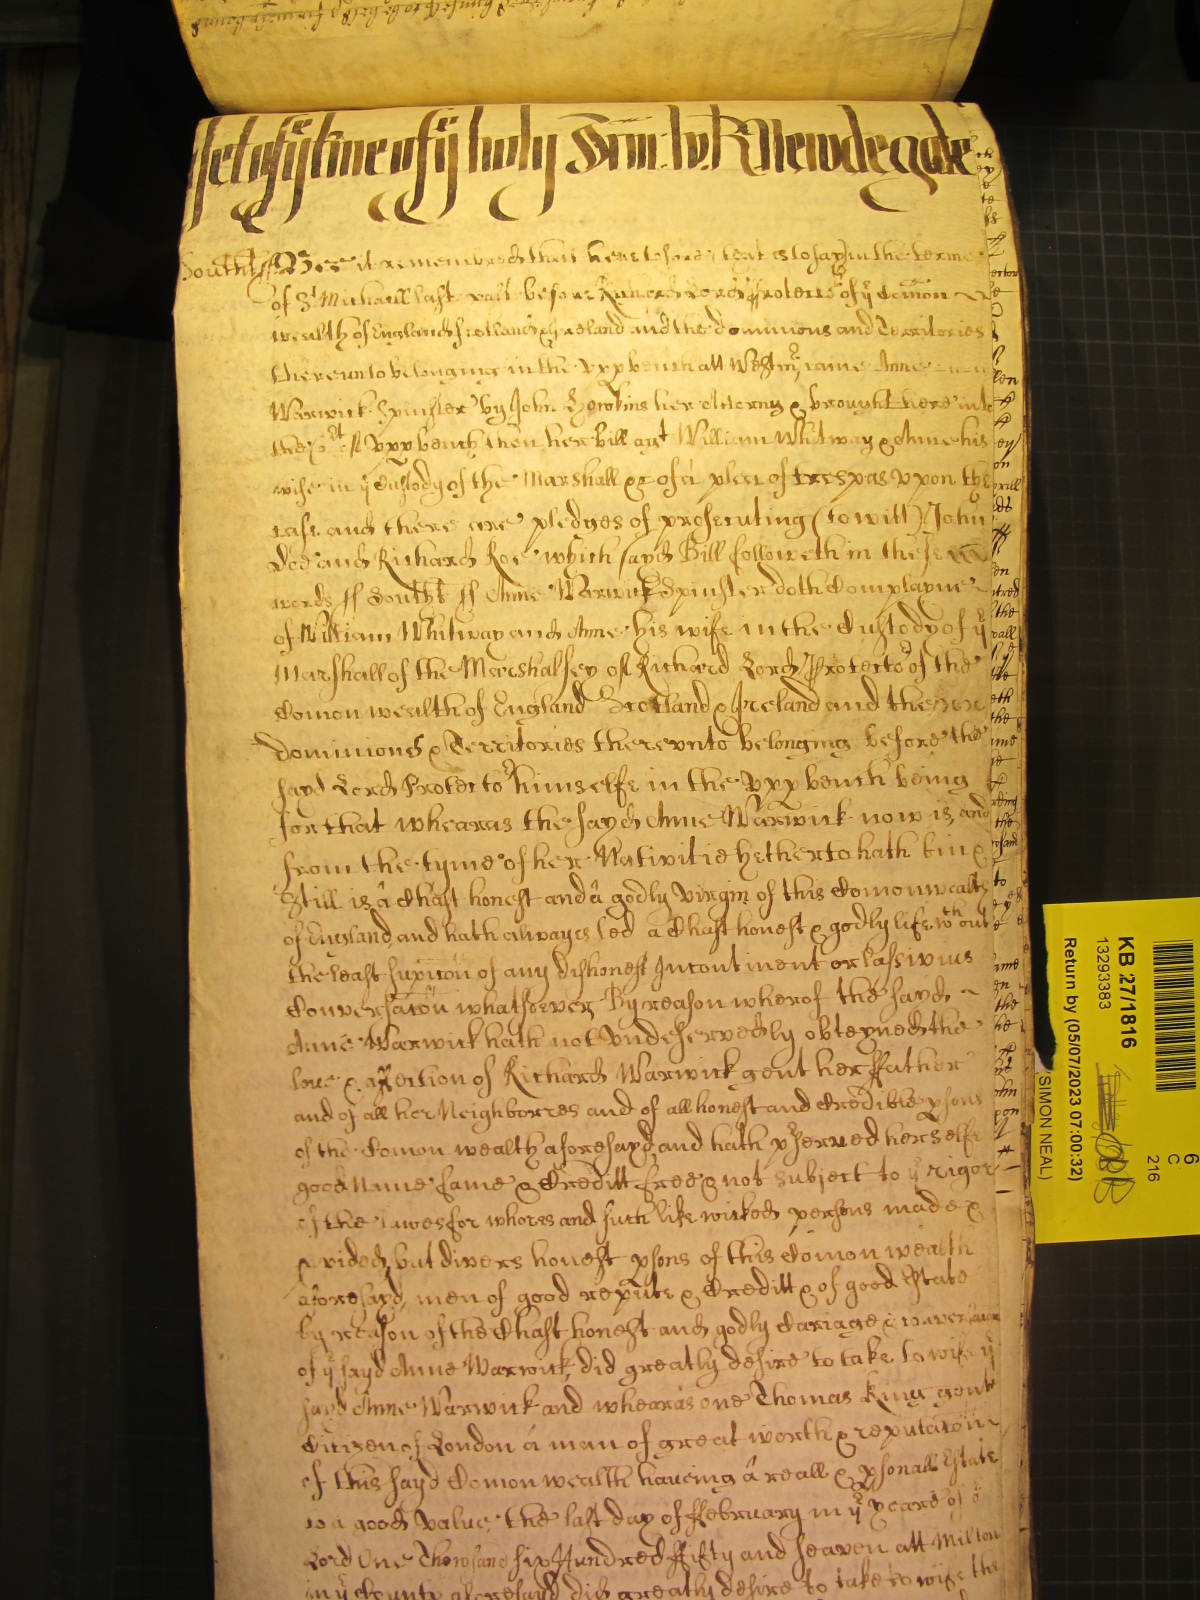 yet of ye terme of ye holy Trin: 1659 Newdegate
Southt ss Bee it remembred that heretofore that is to say in the terme
of St Michaell last past before Richard Lord Protector of ye Comon
wealth of England Scotland & Ireland and the dominions and Territories
thereunto belonging in the vpp bench att Westmr came Anne
Warwick Spinster by John Hawkins her Attorny & brought here into
the Court of vpp bench then her bill agt William Whitway & Anne his
wife in ye Custody of the Marshall &c of a plea of trespas vpon the
case and there are pledges of prosecuting (to witt) John
Doe and Richard Roe which sayd Bill followeth in these
words ss Southt ss Anne Warwick Spinster doth Complayne
of William Whitway and Anne his wife in the Custody of ye
Marshall of the Marshalsey of Richard Lord Protector of the
Comon wealth of England Scotland & Ireland and the
dominions & Territories therevnto belonging before the
sayd Lord Protector himselfe in the vpp bench being
for that wheras the sayd Anne Warwick now is and
from the tyme of her Nativitie hetherto hath bin &
Still is a Chast honest and a godly virgin of this Comonwealth
of England and hath alwayes led a Chast honest & godly life wthout
the least supicon of any dishonest Incontinent or lassivius
Conversacon whatsoever By reason wherof the sayd
Anne Warwick hath not vndeservedly obteyned the
love & affection of Richard Warwick gent her ffather
and of all her Neighborres and of all honest and Credible psons
of the Comon wealth aforesayd and hath pserved herselfe
good Name fame & Creditt free & not subject to ye rigor
of the lawes for whores and such like wicked persons made &
pvided but divers honest psons of this Comon wealth
aforesayd, men of good repute & Creditt & of good Estate
by reason of the Chast honest and godly Cariage & conversacon
of ye sayd Anne Warwick did greatly desire to take to wife ye
sayd Anne Warwick and wheras one Thomas King gent
Citizen of London a man of great worth & reputacon
of this sayd Comon wealth haveing a reall & psonall Estate
to a good value, the last day of ffebruary in ye yeare of or
Lord One Thowsand six Hundred ffifty and seaven att Milton
in ye County aforesayd did greatly desire to take to wife the
KB 27/1816
13293383
Return by (05/07/2023 07:00:32)
(SIMON NEAL)
6
C
216